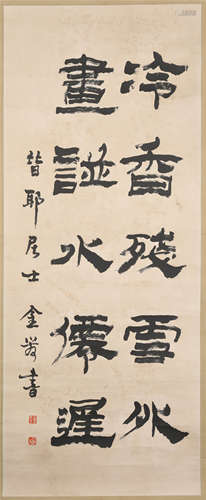 冷香殘雪
畫水僊遲
昔耶居士金農書